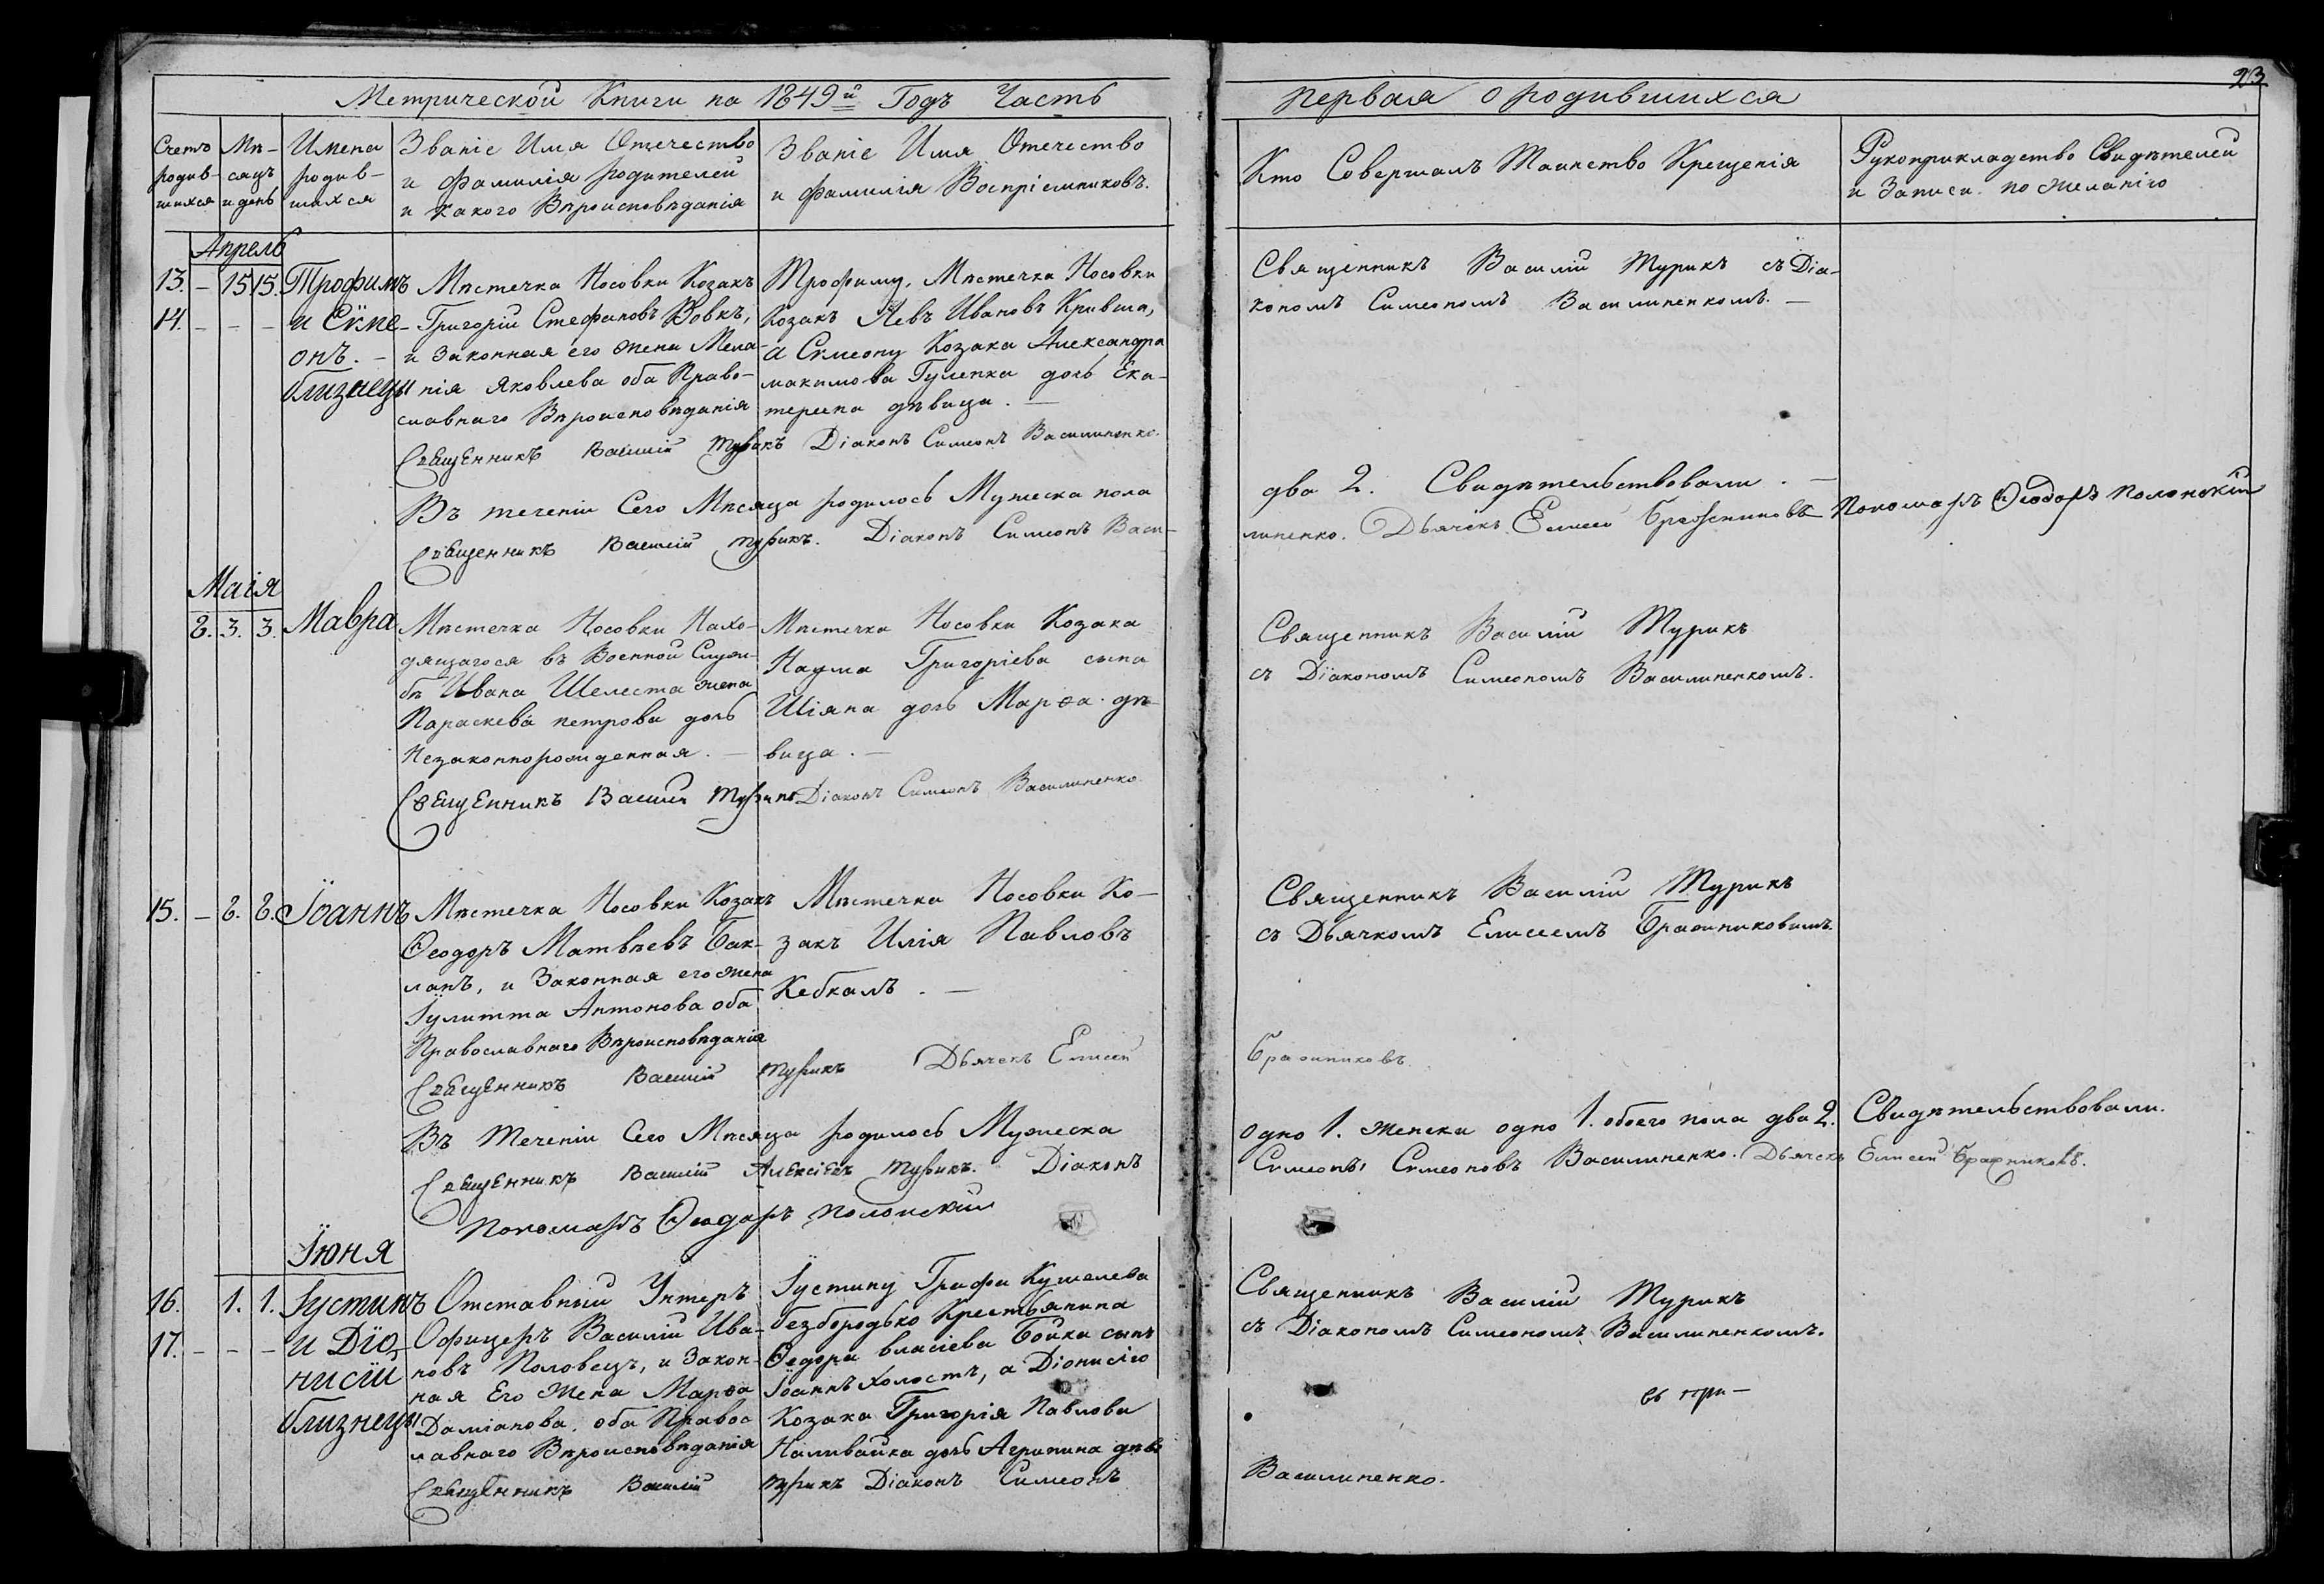 23
Метрической Книги на 1849й Годъ Часть
первая о родившихся
Счетъ родив- шихся
Мѣ- сяцъ и день
Имена родив- шихся
Званіе Имя Отечество
и Фамилія родителей
и какого Вѣроисповѣданія
Званіе Имя Отечество
и Фамилія Воспріемниковъ.
Кто Совершалъ Таинство Крещенія
Рукоприкладство Свидѣтелей
и Записи по желанію
Апрель
13. – 15. 15.
14. – – –
Трофимъ
и Сѵме-
онъ. –
близнецы
Мѣстечка Носовки Козакъ
Григорій Стефановъ Вовкъ,
и Законная его жена Мела-
нія Яковлева оба Право-
славнаго Вѣроисповѣданія
Трофиму, Мѣстечка Носовки
Козакъ Левъ Ивановъ Кривша,
а Сѵмеону Козака Александра
макимова Гуленка дочь Ека-
терина дѣвица. –
Священникъ Василій Турикъ съ Діа-
кономъ Симеономъ Василиненкомъ. –
Священникъ Василій Турикъ Діаконъ Симеонъ Василиненко.
Въ теченіи Сего Мѣсяца родилось Мужеска пола
два 2. Свидѣтельствовали. –
Священникъ Василій Турикъ. Діаконъ Симеонъ Васи-
линенко. Дьячекъ Елисей Бражниковъ Пономарь Ѳеодоръ Полонскій
Маія
2. 3. 3.
Мавра
Мѣстечка Носовки Нахо-
дящагося въ Военной Служ-
бѣ Ивана Шелеста жена
Параскева петрова дочь
Незаконнорожденная. –
Мѣстечка Носовки Козака
Наума Григоріева сына
Шіяна дочь Марѳа дѣ-
вица. –
Священникъ Василій Турикъ
съ Діакономъ Симеономъ Василиненкомъ.
Священникъ Василій Турикъ Діаконъ Симеонъ Василиненко
15. – 8. 8.
Іоаннъ
Мѣстечка Носовки Козакъ
Ѳеодоръ Матвѣевъ Бак-
ланъ, и Законная его жена
Іулитта Антонова оба
Православнаго Вѣроисповѣданія
Мѣстечка Носовки Ко-
закъ Илія Павловъ
Кебкалъ. –
Священникъ Василій Турикъ
съ Дьячкомъ Елисеемъ Бражниковимъ.
Священникъ Василій Турикъ Дьячекъ Елисей
Бражниковъ
Въ Теченіи Сего Мѣсяца родилось Мужеска
одно 1. женска одно 1. обоего пола два 2. Свидѣтельствовали.
Священникъ Василій Алексіевъ Турикъ. Діаконъ
Сѵмеонъ Сѵмеоновъ Василиненко. Дьячекъ Елисей Бражниковъ.
Пономарь Ѳеодоръ Полонскій
Іюня
16. 1. 1.
17. – – –
Іустинъ
и Діо-
нисій
близнецы
Отставный Унтеръ
Офицеръ Василій Ива-
новъ Половецъ, и Закон-
ная Его Жена Марѳа
Даміанова, оба Правос
лавнаго Вѣроисповѣданія
Іустину Графа Кушелева
безбородько Крестьянина
Ѳедора власіева Бойка сынъ
Іоаннъ холостъ, а Діонисію
Козака Григорія Павлова
Наливайка дочь Агрипина дѣв
Священникъ Василій Турикъ
съ Діакономъ Симеономъ Василиненкомъ.
Священникъ Василій Турикъ Діаконъ Симеонъ
Василиненко.